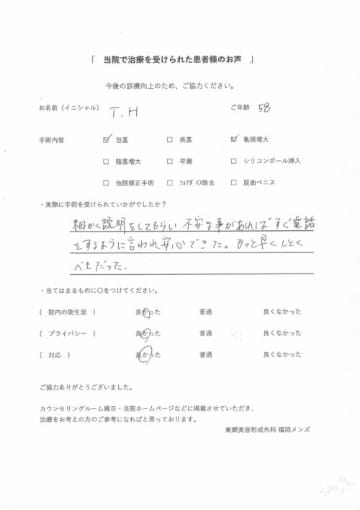 「 当院で治療を受けられた患者様のお声 」
今後の診療向上のため、ご協力ください。
お名前（イニシャル） T.H ご年齢 58
手術内容 ☑ 包茎 □ 長茎 ☑ 亀頭増大
□ 陰茎増大 □ 早漏 □ シリコンボール挿入
□ 他院修正手術 □ フォアダイス除去 □ 屈曲ペニス
・実際に手術を受けられていかがでしたか？
細かく説明をしてもらい不安な事があればすぐ電話
をするように言われ安心できた。もっと早くしとく
べきだった.
・当てはまるものに〇をつけてください。
（ 院内の衛生面 ） 良かった 普通 良くなかった
（ プライバシー ） 良かった 普通 良くなかった
（ 対応 ） 良かった 普通 良くなかった
ご協力ありがとうございました。
カウンセリングルーム掲示・当院ホームページなどに掲載させていただき、
治療をお考えの方のご参考になればと思っております。
東郷美容形成外科 福岡メンズ